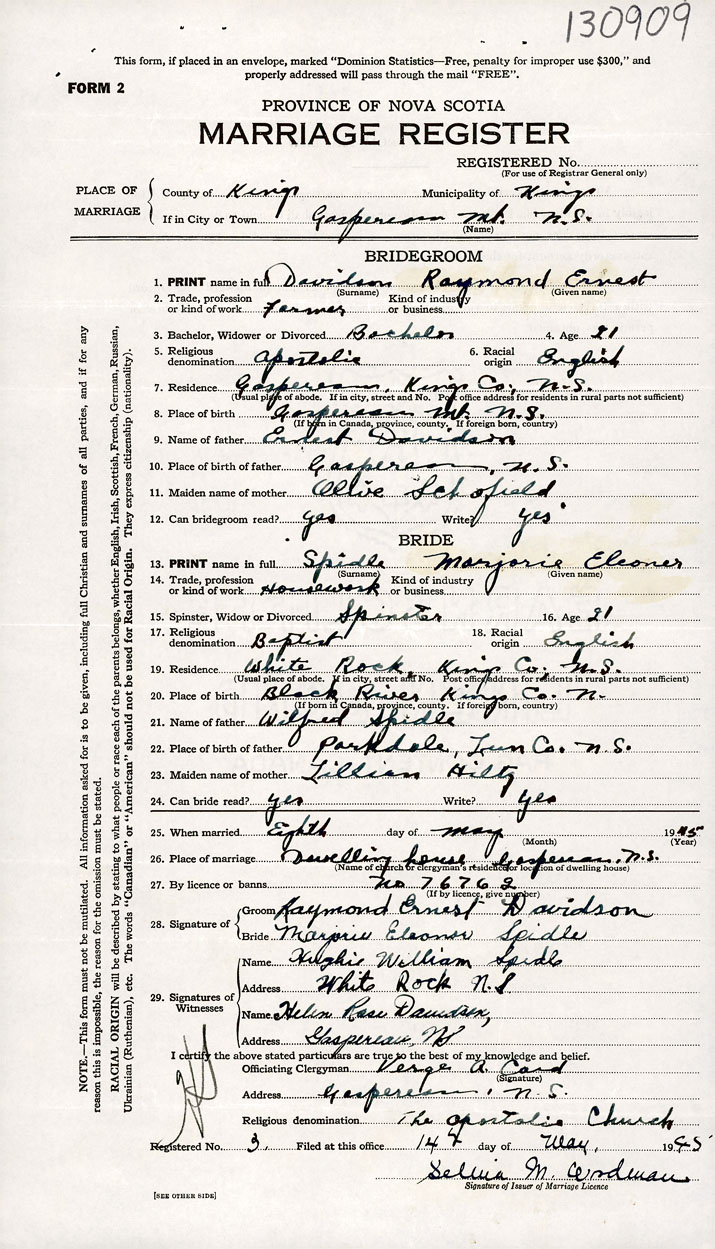 130909
This form, if placed in an envelope, marked "Dominion Statistics—Free, penalty for improper use $300," and
properly addressed will pass through the mail "FREE".
FORM 2
PROVINCE OF NOVA SCOTIA
MARRIAGE REGISTER
REGISTERED No.
(For use of Registrar General only)
PLACE OF MARRIAGE
County of Kings Municipality of Kings
If in City or Town Gaspereau Mt. N.S.
(Name)
BRIDEGROOM
1. PRINT name in full Davidson Raymond Ernest
(Surname) (Given name)
2. Trade, profession or kind of work Farmer Kind of industry or business
3. Bachelor, Widower or Divorced Bachelor 4. Age 21
5. Religious denomination Apostolic 6. Racial origin English
7. Residence Gaspereau, Kings Co., N.S.
(Usual place of abode. If in city, street and No. Post office address for residents in rural parts not sufficient)
8. Place of birth Gaspereau Mt. N.S.
(If born in Canada, province, county. If foreign born, country)
9. Name of father Ernest Davidson
10. Place of birth of father Gaspereau, N.S.
11. Maiden name of mother Olive Schofield
12. Can bridegroom read? yes Write? yes
BRIDE
13. PRINT name in full Spidle Marjorie Eleoner
(Surname) (Given name)
14. Trade, profession or kind of work Housework Kind of industry or business
15. Spinster, Widow or Divorced Spinster 16. Age 21
17. Religious denomination Baptist 18. Racial origin English
19. Residence White Rock, Kings Co, N.S.
(Usual place of abode. If in city, street and No. Post office address for residents in rural parts not sufficient)
20. Place of birth Black River Kings Co. N.
(If born in Canada, province, county. If foreign born, country)
21. Name of father Wilfred Spidle
22. Place of birth of father Parkdale, Lun Co. N.S.
23. Maiden name of mother Lillian Hiltz
24. Can bride read? yes Write? yes
25. When married Eighth day of May 1945
(Month) (Year)
26. Place of marriage Dwelling house Gaspereau, N.S.
(Name of church or clergyman's residence or location of dwelling house)
27. By licence or banns No 76762
(If by licence, give number)
28. Signature of
Groom Raymond Ernest Davidson
Bride Marjorie Eleoner Spidle
29. Signatures of Witnesses
Name Hughie William Spidle
Address White Rock N.S
Name Helen Rose Davidson,
Address Gaspereau, NS
I certify the above stated particulars are true to the best of my knowledge and belief.
Officiating Clergyman Verge A. Card
(Signature)
Address Gaspereau, N.S.
Religious denomination The Apostolic Church
Registered No. 3, Filed at this office 14th day of May, 1945
M. Woodman
Signature of Issuer of Marriage Licence
[SEE OTHER SIDE]
NOTE.—This form must not be mutilated. All information asked for is to be given, including full Christian and surnames of all parties, and if for any
reason this is impossible, the reason for the omission must be stated.
RACIAL ORIGIN will be described by stating to what people or race each of the parents belongs, whether English, Irish, Scottish, French, German, Russian,
Ukrainian (Ruthenian), etc. The words "Canadian" or "American" should not be used for Racial Origin. They express citizenship (nationality).